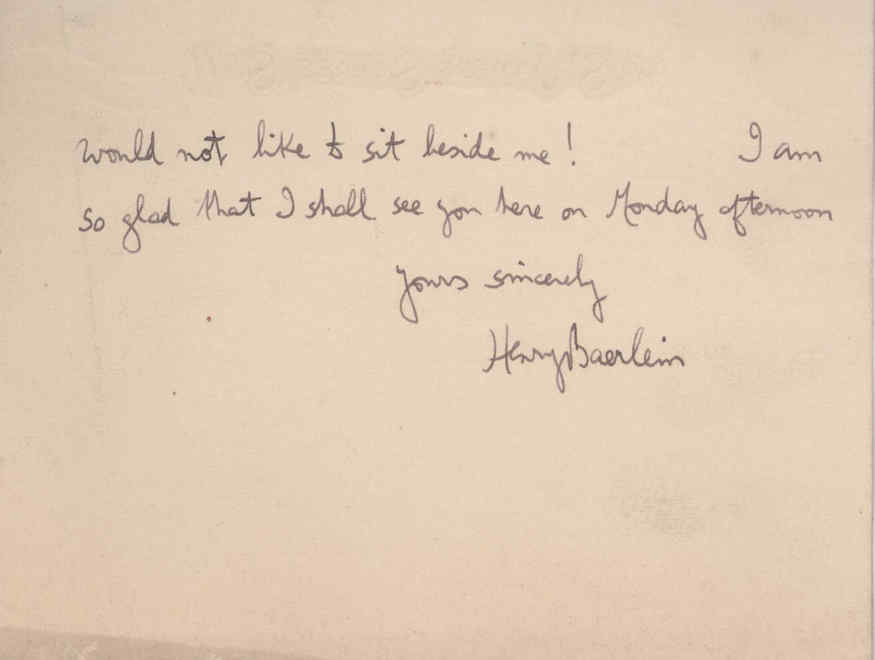 would not like to sit beside me! I am
so glad that I shall see you here on Monday afternoon
yours sincerely
Henry Baerlein